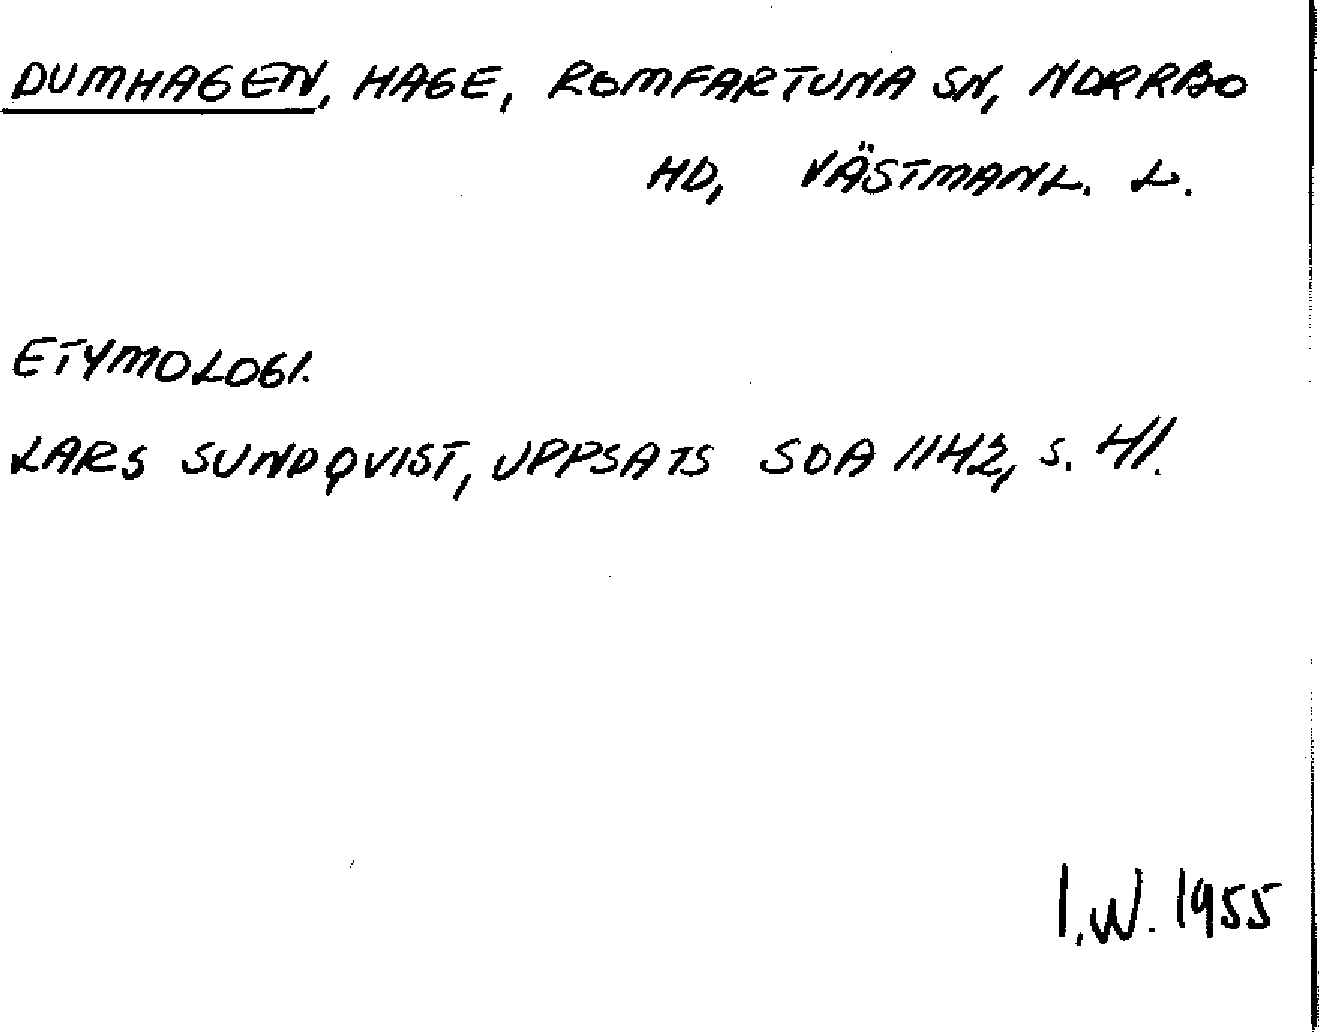 DUMHAGEN, HAGE, ROMFARTUNA SN, NORRBO
HD, VÄSTMANL. L.
ETYMOLOGI.
LARS SUNDQVIST, UPPSATS SOA 1142, S. 41.
I.W. 1955